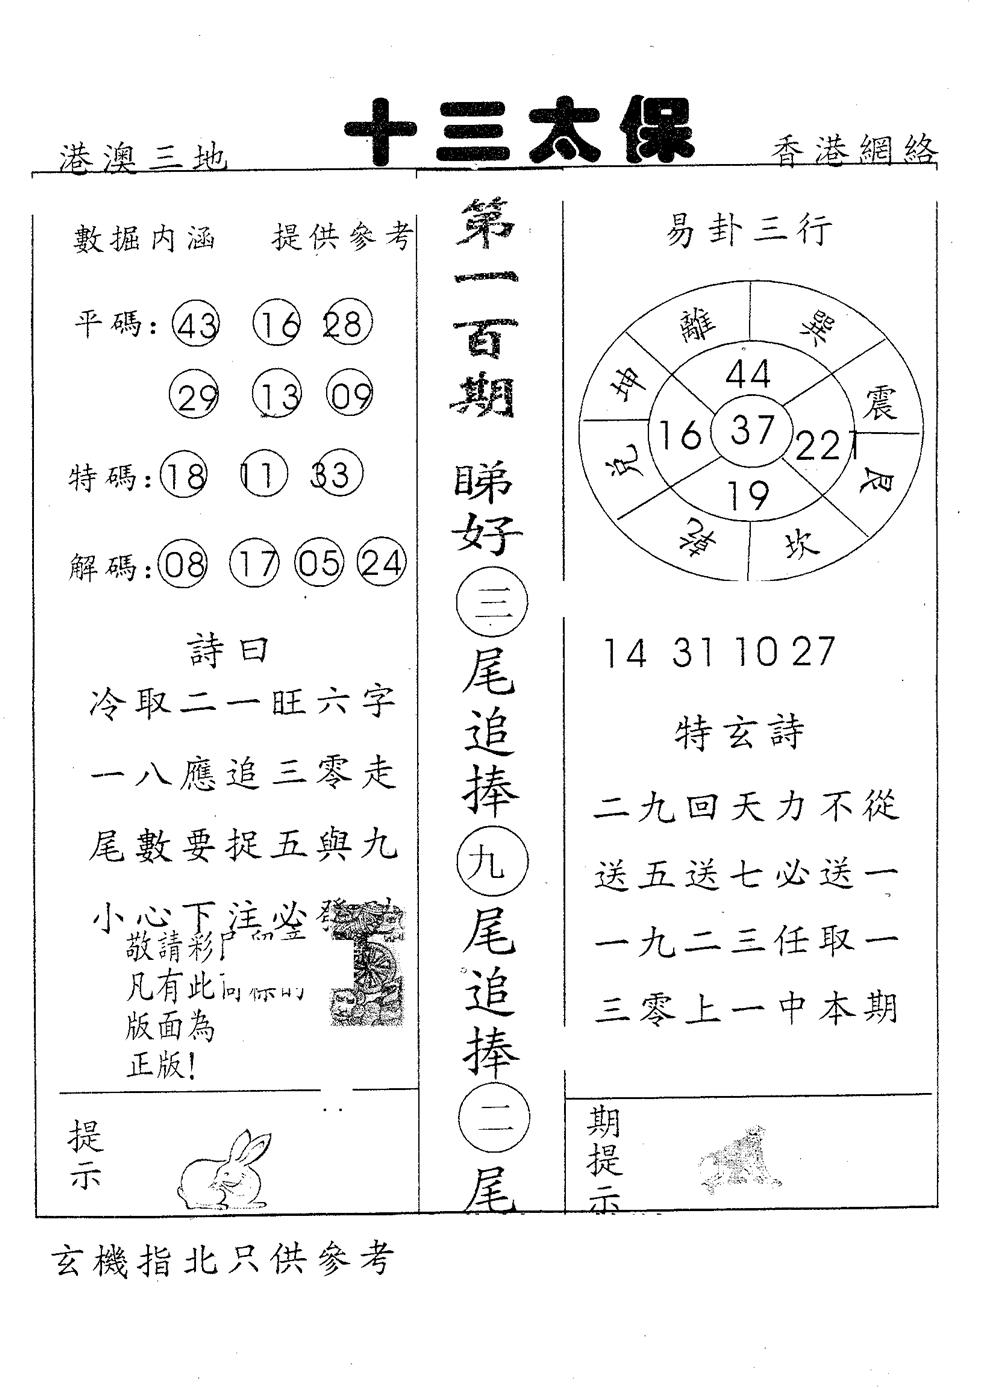 十三太保
港澳三地
香港網絡
數据内涵 提供參考
平碼: 43 16 28
29 13 09
特碼: 18 11 33
解碼: 08 17 05 24
詩曰
冷取二一旺六字
一八應追三零走
尾數要捉五與九
小心下注必發
敬請彩
凡有此
版面為
正版!
提示
第一百期
睇好三尾追捧九尾追捧二尾
易卦三行
離 巽
坤 44 震
16 37 221
兌 19 艮
乾 坎
14 31 10 27
特玄詩
二九回天力不從
送五送七必送一
一九二三任取一
三零上一中本期
期提示
玄機指北只供參考